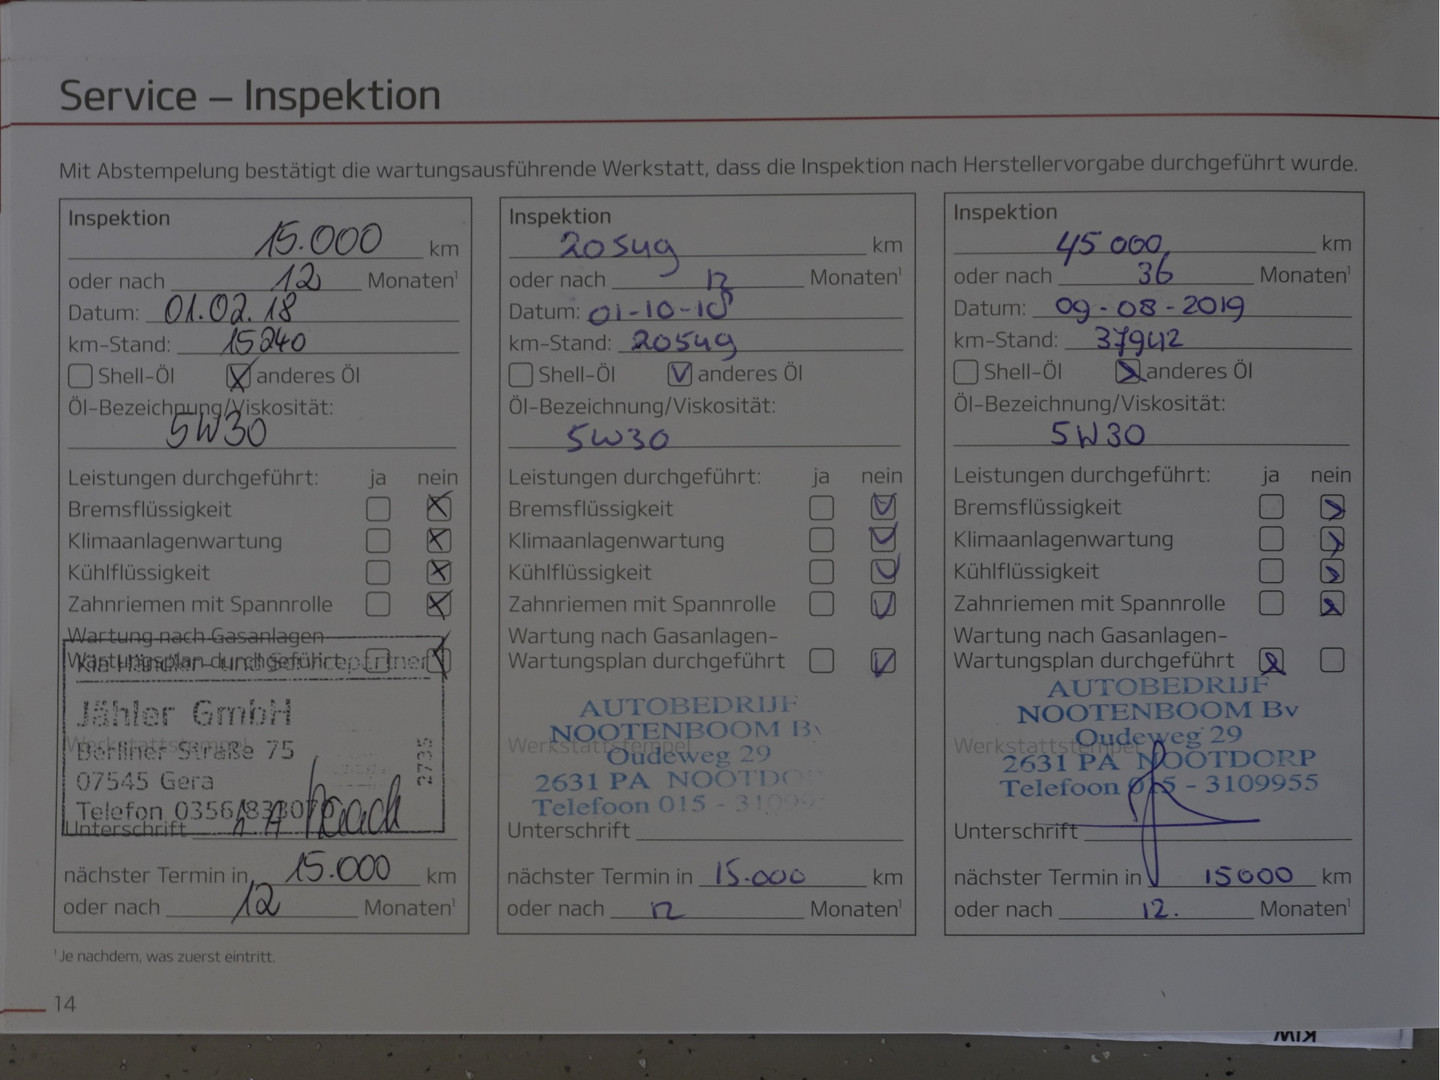 Service – Inspektion
Mit Abstempelung bestätigt die wartungsausführende Werkstatt, dass die Inspektion nach Herstellervorgabe durchgeführt wurde.
Inspektion
15.000 km
oder nach 12 Monaten¹
Datum: 01.02.18
km-Stand: 15240
Shell-Öl anderes Öl
Öl-Bezeichnung/Viskosität:
5W30
Leistungen durchgeführt: ja nein
Bremsflüssigkeit
Klimaanlagenwartung
Kühlflüssigkeit
Zahnriemen mit Spannrolle
Wartung nach Gasanlagen-
Wartungsplan durchgeführt
Kia-Händler- und Servicepartner
Jähler GmbH
Werkstattstempel
Berliner Straße 75
07545 Gera
2735
Unterschrift
nächster Termin in 15.000 km
oder nach 12 Monaten¹
Inspektion
20549 km
oder nach 12 Monaten¹
Datum: 01-10-18
km-Stand: 20549
Shell-Öl anderes Öl
Öl-Bezeichnung/Viskosität:
5W30
Leistungen durchgeführt: ja nein
Bremsflüssigkeit
Klimaanlagenwartung
Kühlflüssigkeit
Zahnriemen mit Spannrolle
Wartung nach Gasanlagen-
Wartungsplan durchgeführt
AUTOBEDRIJF
NOOTENBOOM
Werkstattstempel
Oudeweg 29
2631 PA
Telefoon 015 -
Unterschrift
nächster Termin in 15.000 km
oder nach 12 Monaten¹
Inspektion
45 000 km
oder nach 36 Monaten¹
Datum: 09-08-2019
km-Stand: 37942
Shell-Öl anderes Öl
Öl-Bezeichnung/Viskosität:
5W30
Leistungen durchgeführt: ja nein
Bremsflüssigkeit
Klimaanlagenwartung
Kühlflüssigkeit
Zahnriemen mit Spannrolle
Wartung nach Gasanlagen-
Wartungsplan durchgeführt
AUTOBEDRIJF
NOOTENBOOM Bv
Oudeweg 29
Werkstattstempel
2631 PA NOOTDORP
Telefoon 015 - 3109955
Unterschrift
nächster Termin in 15000 km
oder nach 12. Monaten¹
¹Je nachdem, was zuerst eintritt.
14